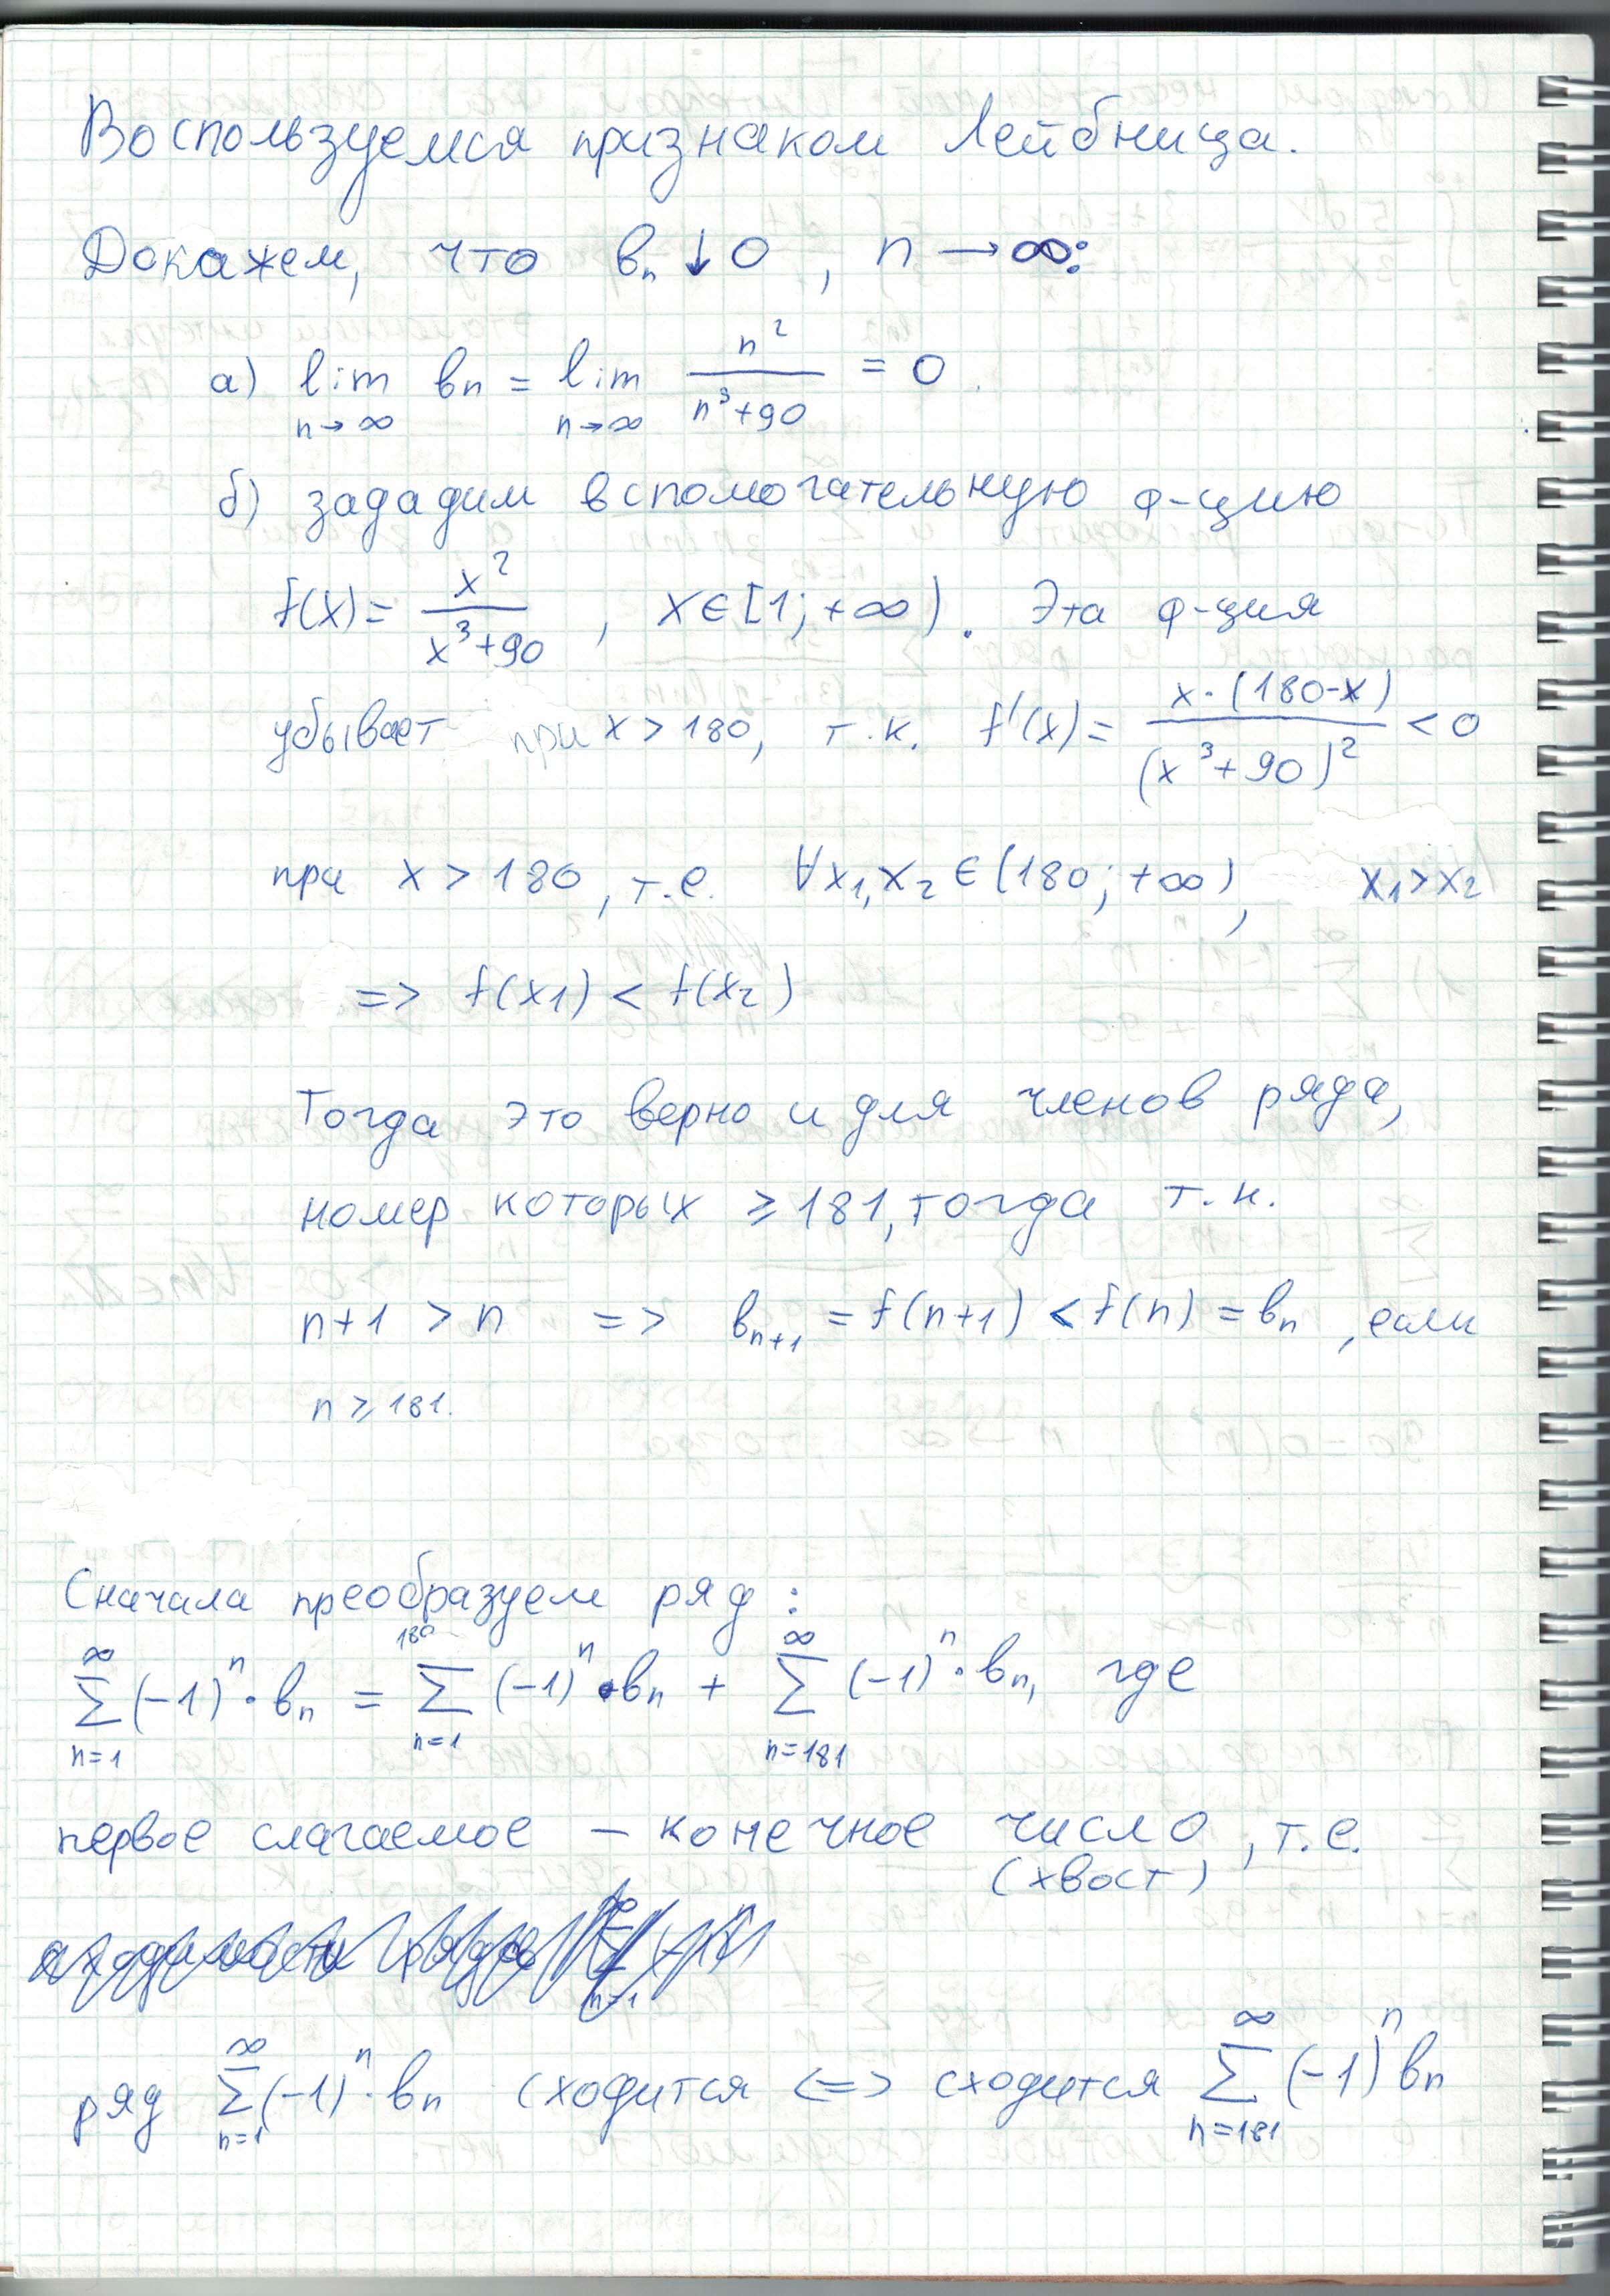 Воспользуемся признаком Лейбница.
Докажем, что bₙ ↓ 0, n → ∞:
а) lim_{n→∞} bₙ = lim_{n→∞} n²/(n³+90) = 0.
б) зададим вспомогательную ф-цию
f(x) = x²/(x³+90), x ∈ [1; +∞). Эта ф-ция
убывает при x > 180, т.к. f'(x) = x·(180-x)/(x³+90)² < 0
при x > 180, т.е. ∀x₁,x₂ ∈ (180; +∞), x₁ > x₂
=> f(x₁) < f(x₂)
Тогда это верно и для членов ряда,
номер которых ⩾ 181, тогда т.к.
n+1 > n => bₙ₊₁ = f(n+1) < f(n) = bₙ, если
n ⩾ 181.
Сначала преобразуем ряд:
∑_{n=1}^{∞} (-1)ⁿ·bₙ = ∑_{n=1}^{180} (-1)ⁿ·bₙ + ∑_{n=181}^{∞} (-1)ⁿ·bₙ, где
первое слагаемое – конечное число, т.е.
(хвост)
ряд ∑_{n=1}^{∞} (-1)ⁿ·bₙ сходится <=> сходится ∑_{n=181}^{∞} (-1)ⁿ bₙ